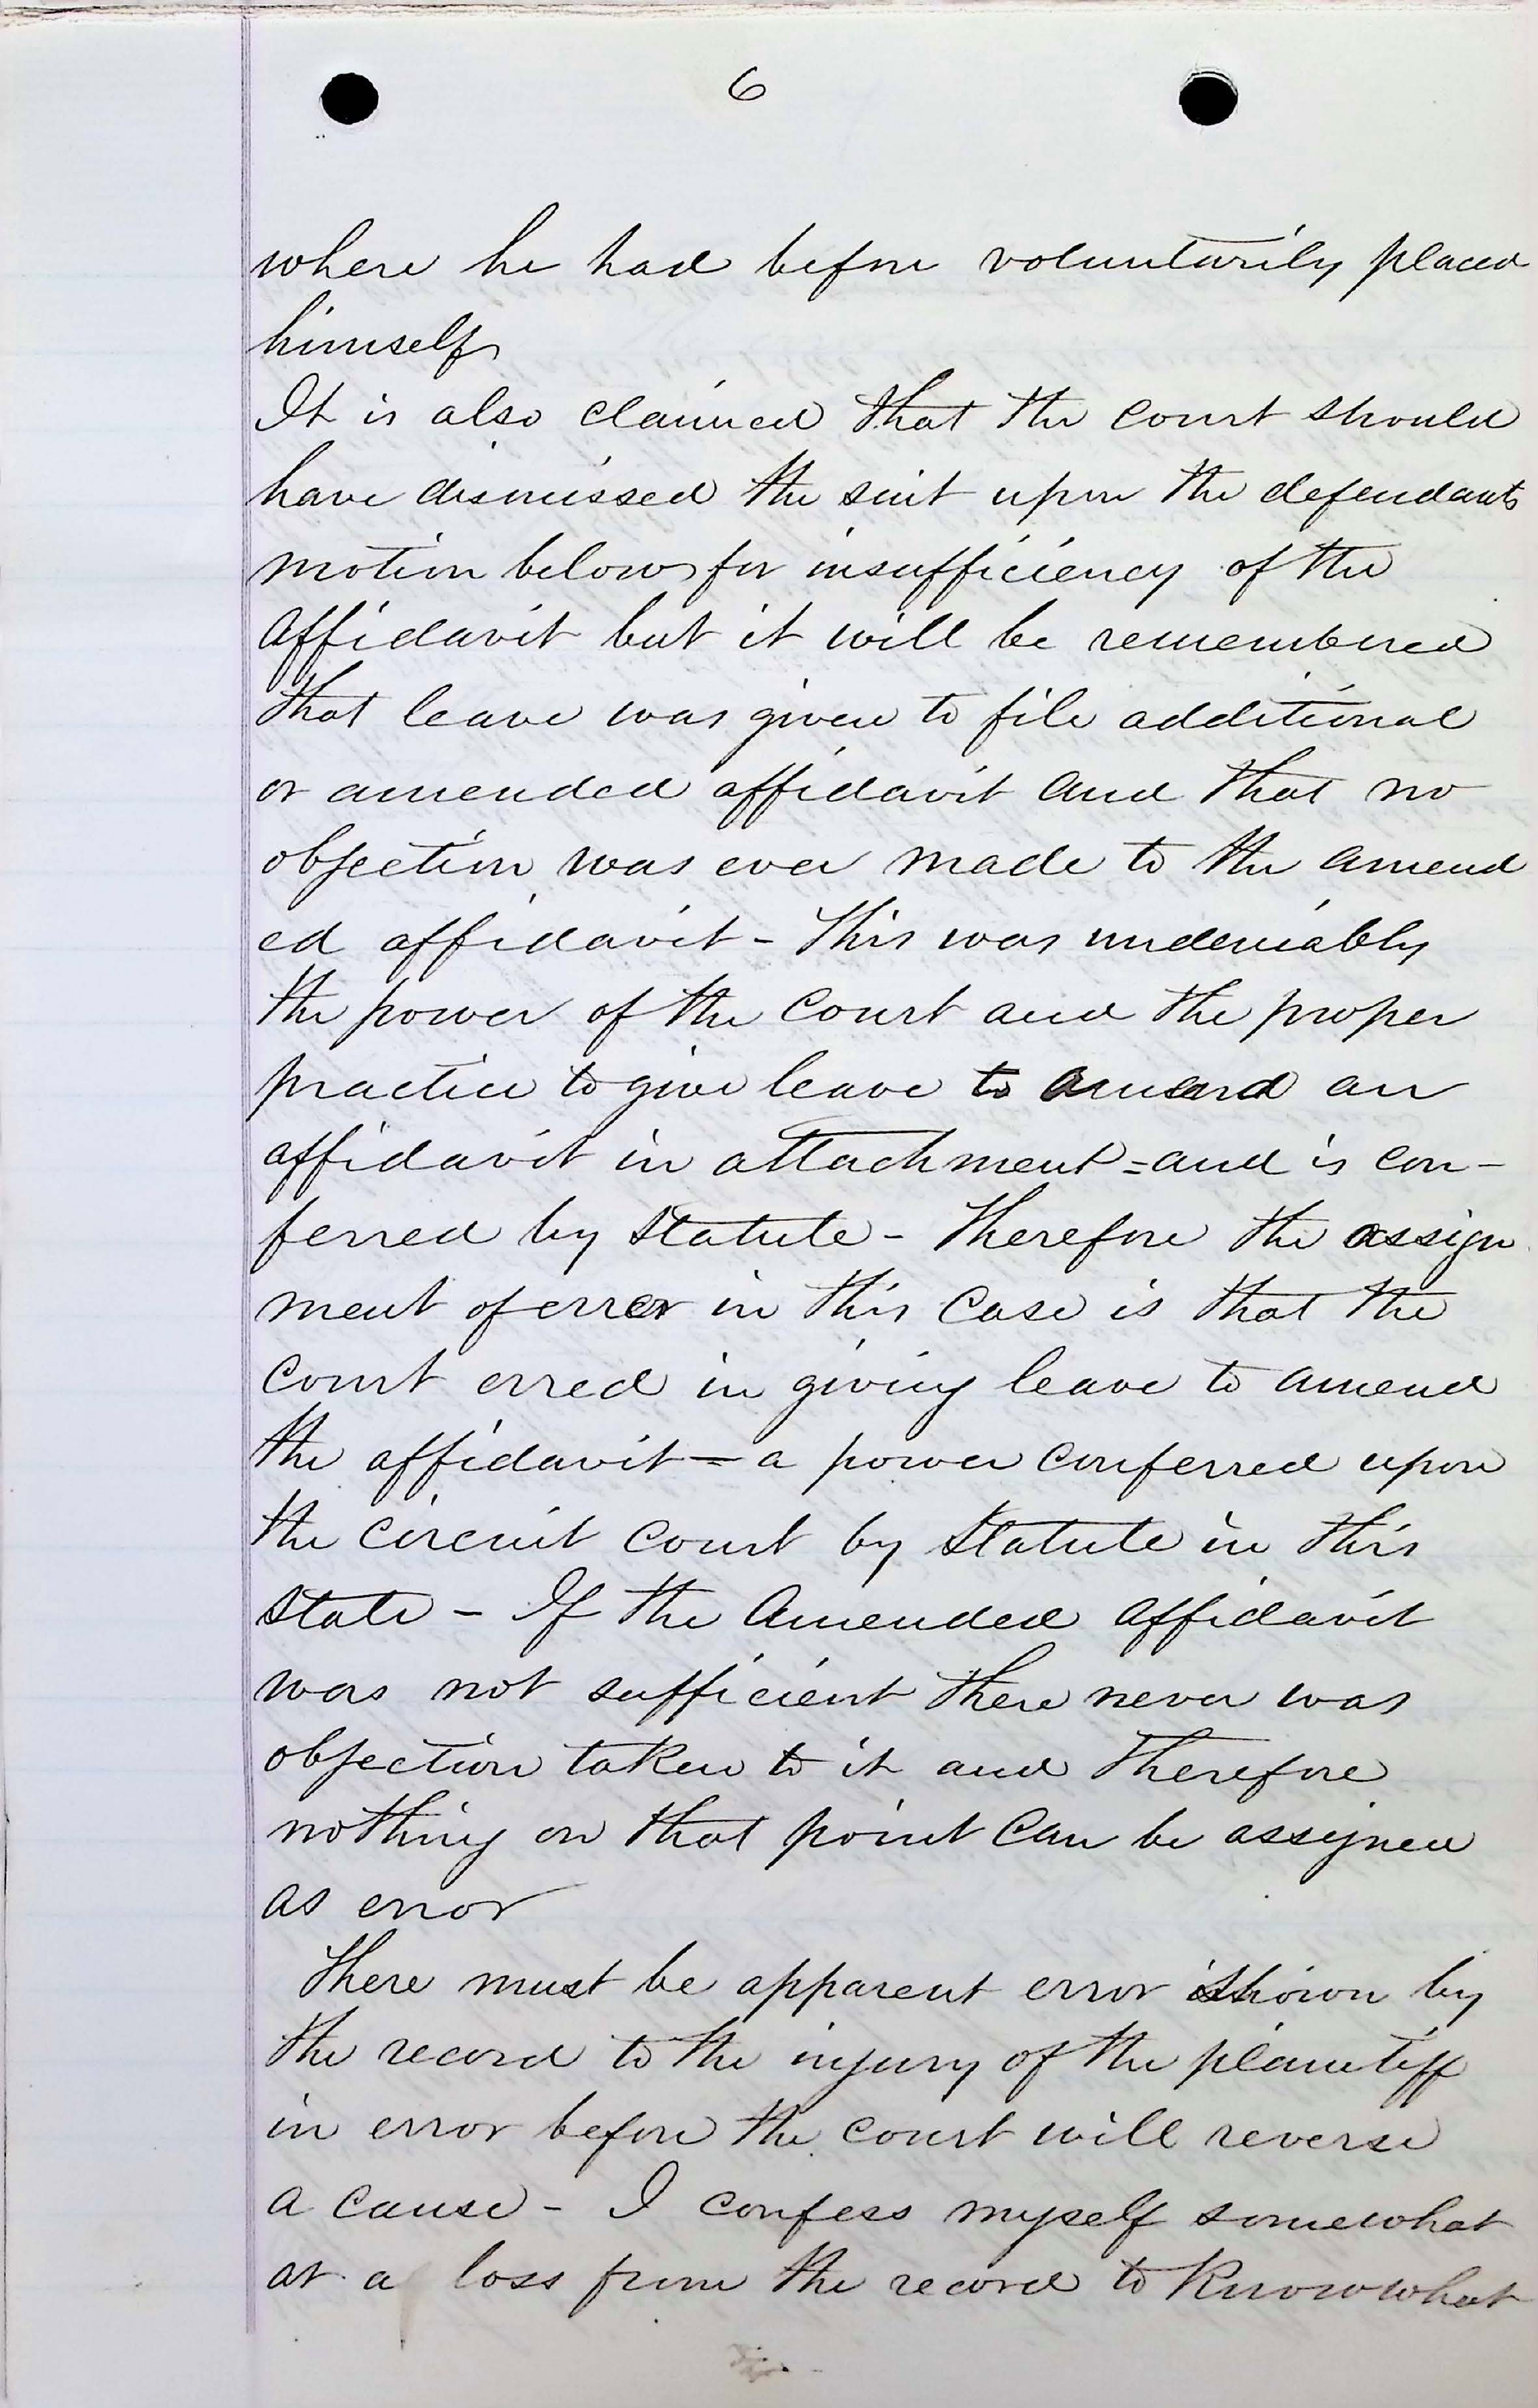 6
where he had before voluntarily placed
himself
It is also claimed that the court should
have dismissed the suit upon the defendants
motion below for insufficiency of the
affidavit but it will be remembered
that leave was given to file additional
or amended affidavit and that no
objection was ever made to the amend
ed affidavit - This was undeniably
the power of the court and the proper
practice to give leave to amend an
affidavit in attachment = and is con-
ferred by statute - Therefore the assign
ment of error in this case is that the
court erred in giving leave to amend
the affidavit = a power conferred upon
the circuit court by statute in this
state - If the amended affidavit
was not sufficient there never was
objection taken to it and therefore
nothing on that point can be assigned
as error
There must be apparent error shown by
the record to the injury of the plaintiff
in error before the court will reverse
a cause - I confess myself somewhat
at a loss from the record to know what